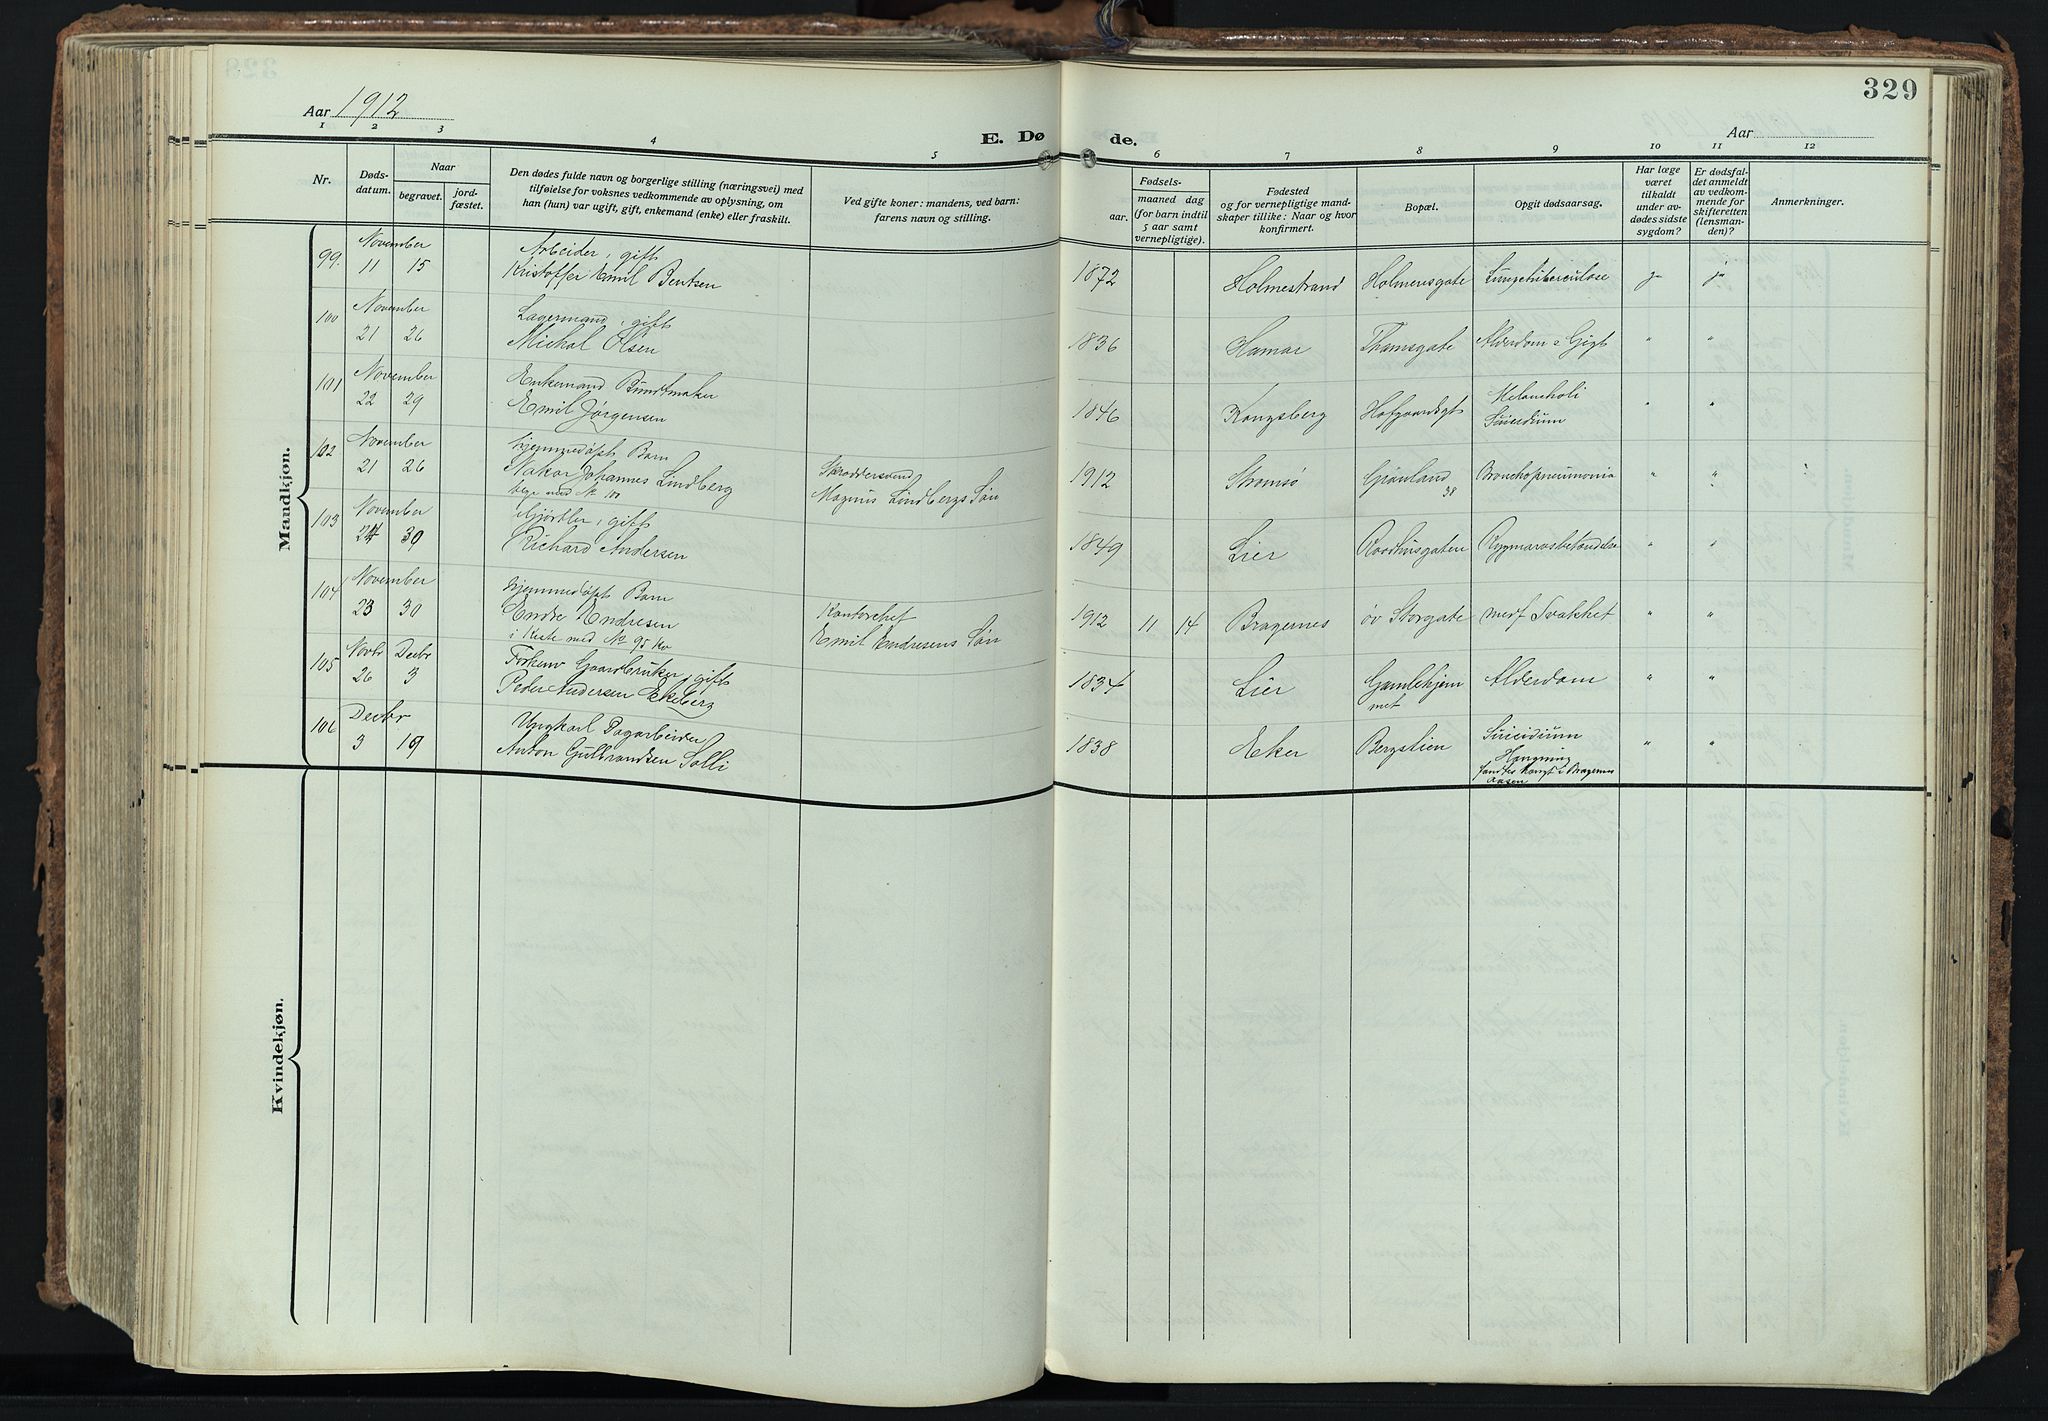 329
Aar 1912
Aar
E. Dø de.
1 2 3 4 5 6 7 8 9 10 11 12
Nr.
Døds-
datum.
Naar
begravet.
jord-
fæstet.
Den dødes fulde navn og borgerlige stilling (næringsvei) med
tilføielse for voksnes vedkommende av oplysning, om
han (hun) var ugift, gift, enkemand (enke) eller fraskilt.
Ved gifte koner: mandens, ved barn:
farens navn og stilling.
Fødsels-
aar.
maaned dag
(for barn indtil
5 aar samt
vernepligtige).
Fødested
og for vernepligtige mand-
skaper tillike: Naar og hvor
konfirmert.
Bopæl.
Opgit dødsaarsag.
Har læge
været
tilkaldt
under av-
dødes sidste
sygdom?
Er dødsfal-
det anmeldt
av vedkom-
mende for
skifteretten
(lensman-
den)?
Anmerkninger.
Mandkjøn.
99. November Arbeider, gift
11 15 Kristoffer Emil Bentsen 1872 Holmestrand Holmensgate Lungetuberculose ja ja
100 November Lagermand, gift
21 26 Michal Olsen 1836 Hamar Thamsgate Alderdom & Gigt " "
101 November Enkemand Bundtmaker
22 29 Emil Jørgensen 1846 Kongsberg Hofgaardsgt Melancholi " "
Suicidium
102 November hjemmedøpt Barn
21 26 Johannes Lindberg Skræddersvend 1912 Strømsø Grønland Bronchopneumonia " "
begr. med No 100 Magnus Lindbergs Søn 38
103 November Gjørtler, gift
24 30 Richard Andersen 1849 Lier Raadhusgaten Rygmarvsbetændelse " "
104 November hjemmedøpt Barn
23 30 Endre Endresen Kontorchef 1912 11 14 Bragernes øv Storgate medf Svakhet " "
i Kiste med No 95 Emil Endresens Søn
105 Novbr Decbr Forhenv Gaardbruker, gift
26 3 Peder Andersen Ekeberg 1834 Lier Gamlehjem " "
met Alderdom
106 Decbr Ungkarl Dagarbeider
3 19 Anton Gulbrandsen Solli 1838 Eker Bergstien Suicidium " "
Hængning
fundet hængt i Bragernes
aasen
Kvindekjøn.